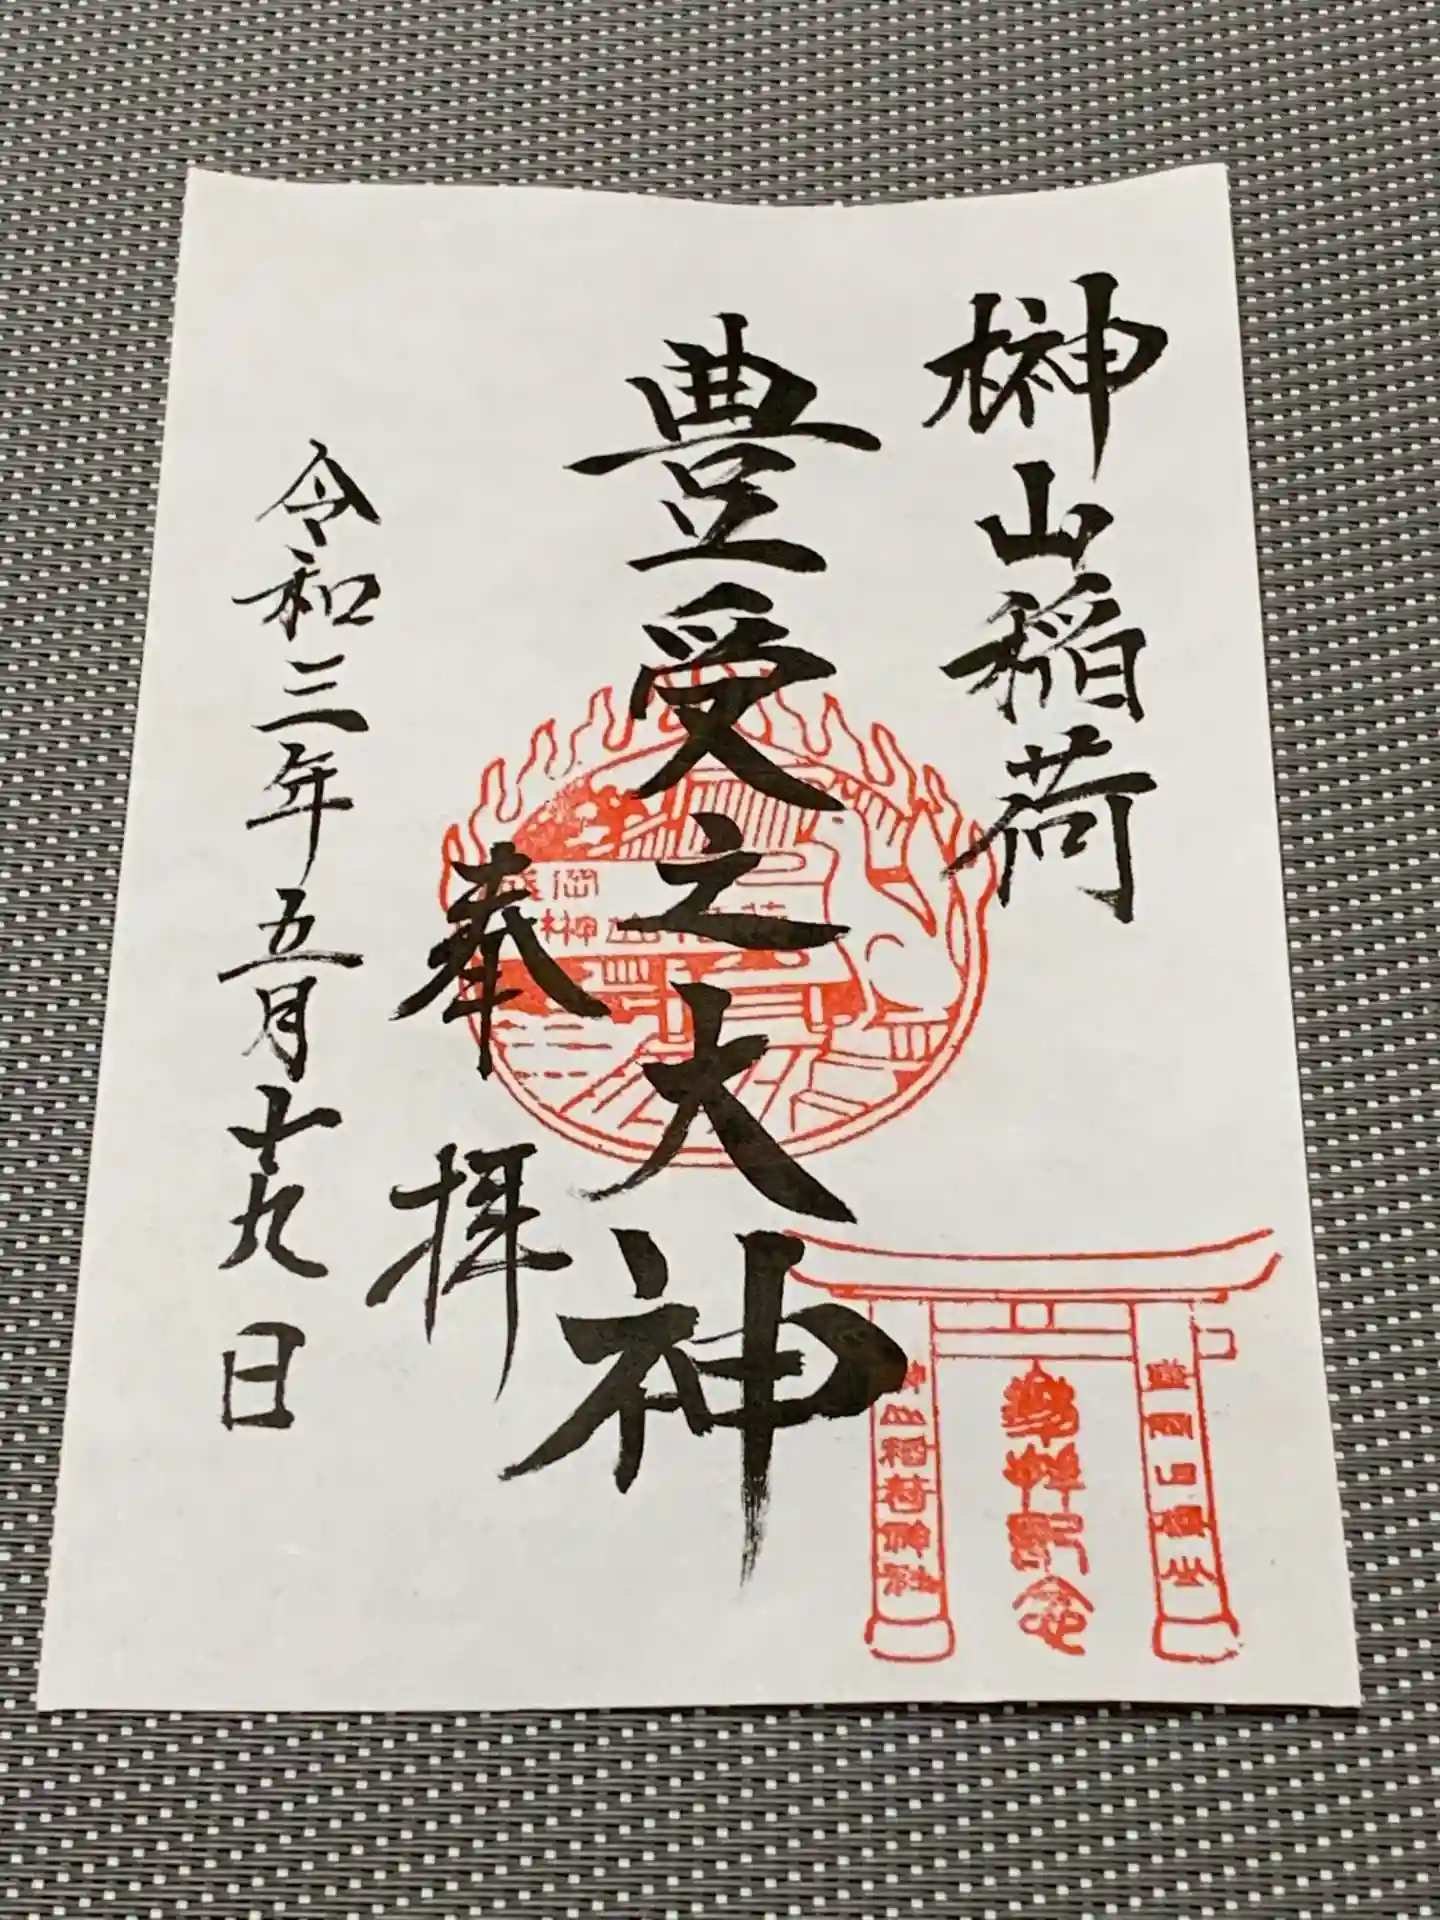 榊山稲荷
豊受之大神
奉拝
令和三年五月十九日
盛岡
榊山稲荷
参拝記念
榊山稲荷神社